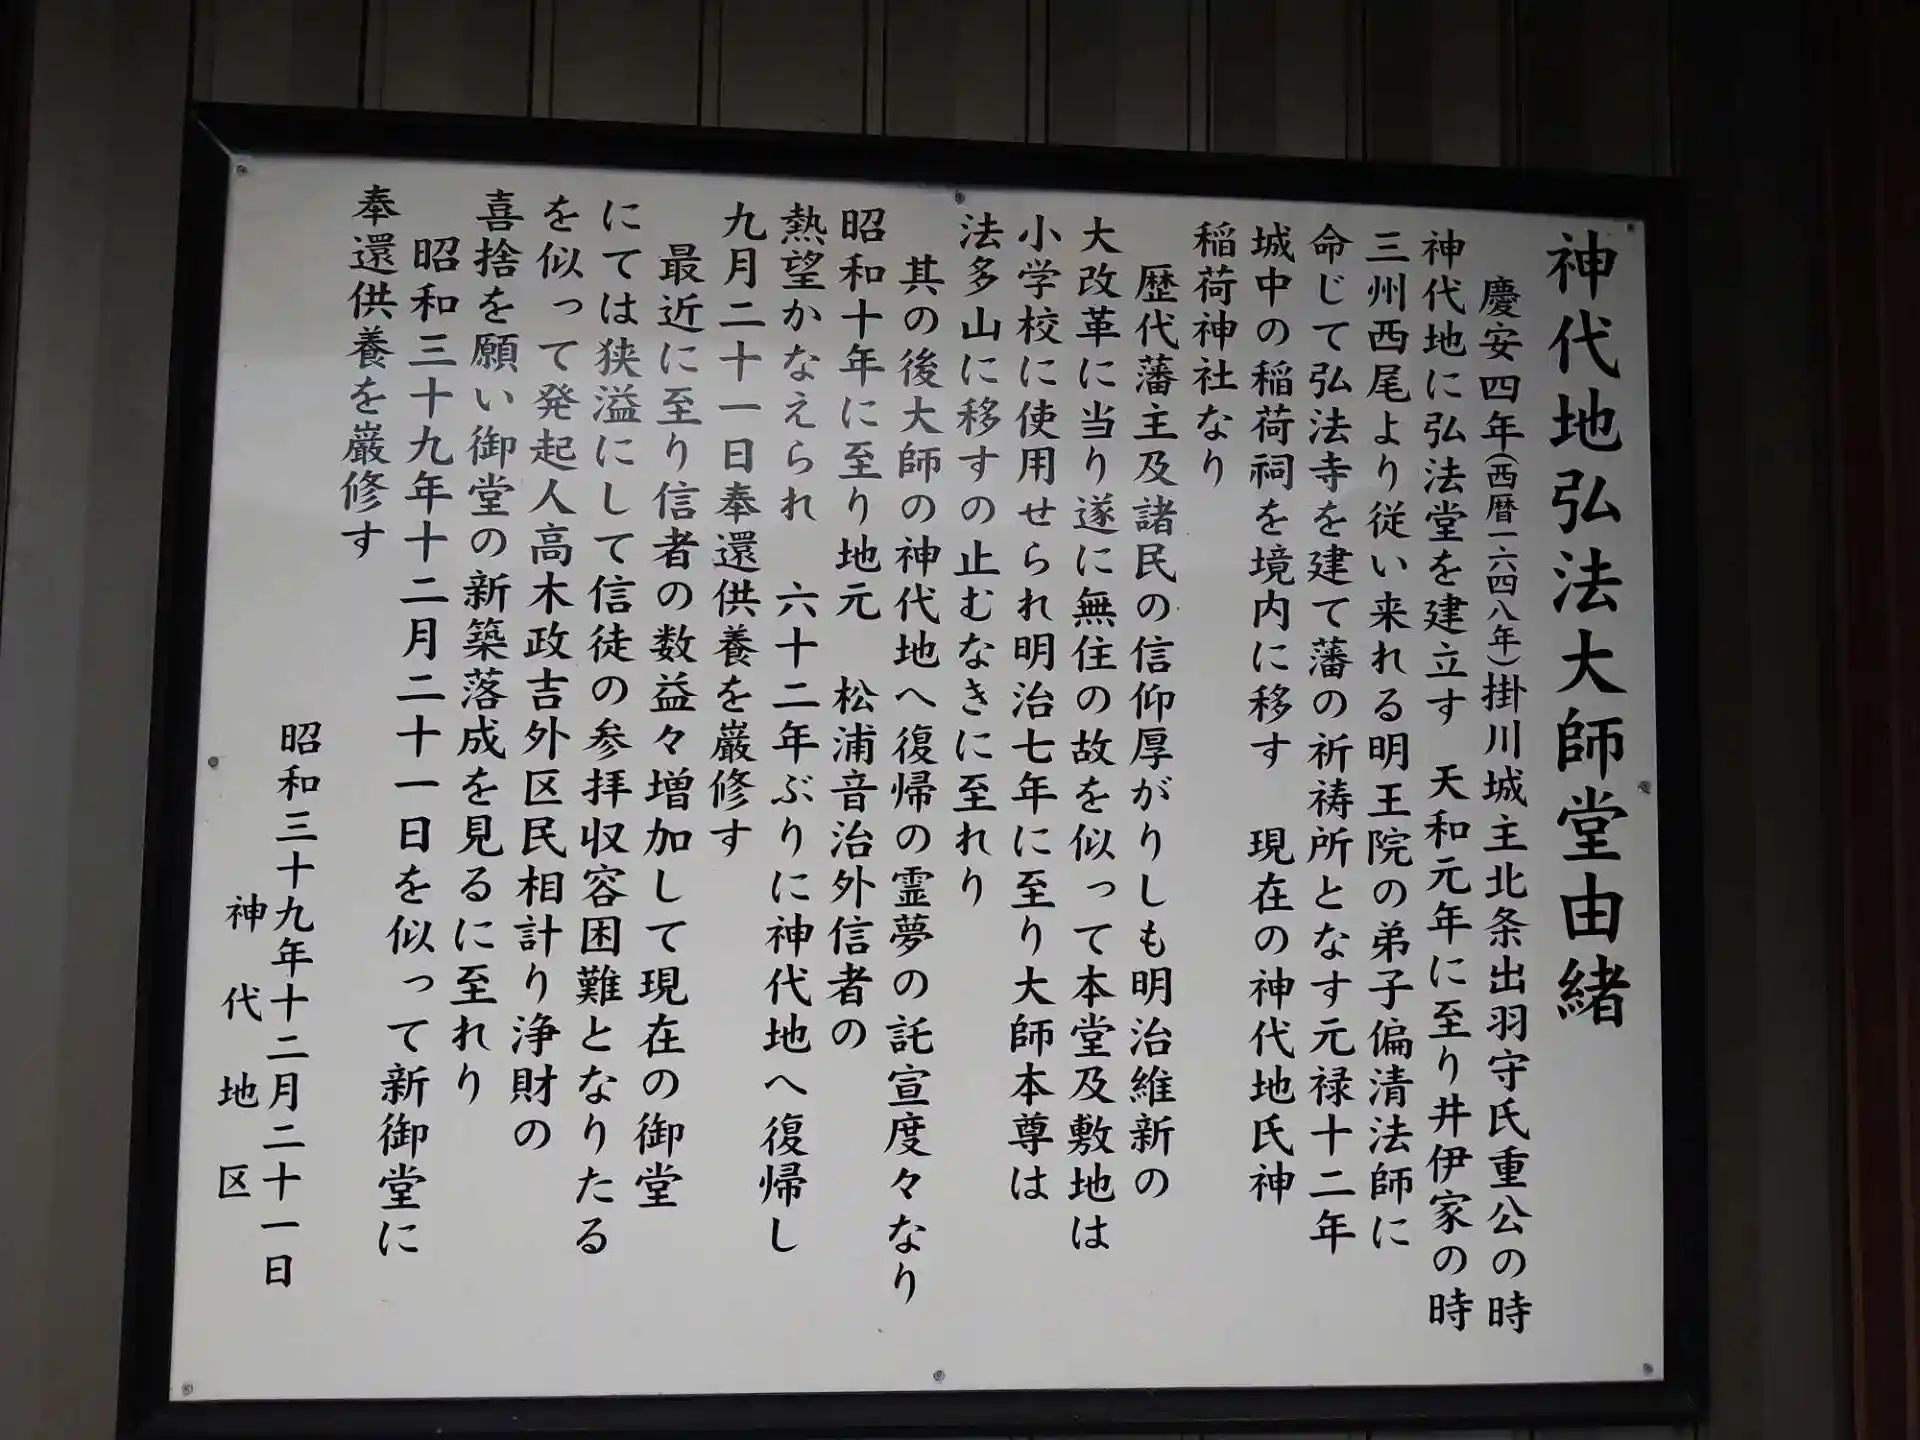 神代地弘法大師堂由緒
慶安四年(西暦一六四八年)掛川城主北条出羽守氏重公の時
神代地に弘法堂を建立す　天和元年に至り井伊家の時
三州西尾より従い来れる明王院の弟子偏清法師に
命じて弘法寺を建て藩の祈祷所となす元禄十二年
城中の稲荷祠を境内に移す　現在の神代地氏神
稲荷神社なり
歴代藩主及諸民の信仰厚がりしも明治維新の
大改革に当り遂に無住の故を似って本堂及敷地は
小学校に使用せられ明治七年に至り大師本尊は
法多山に移すの止むなきに至れり
其の後大師の神代地へ復帰の霊夢の託宣度々なり
昭和十年に至り地元　松浦音治外信者の
熱望かなえられ　六十二年ぶりに神代地へ復帰し
九月二十一日奉還供養を厳修す
最近に至り信者の数益々増加して現在の御堂
にては狭溢にして信徒の参拝収容困難となりたる
を似って発起人高木政吉外区民相計り浄財の
喜捨を願い御堂の新築落成を見るに至れり
昭和三十九年十二月二十一日を似って新御堂に
奉還供養を厳修す
昭和三十九年十二月二十一日
神代地区